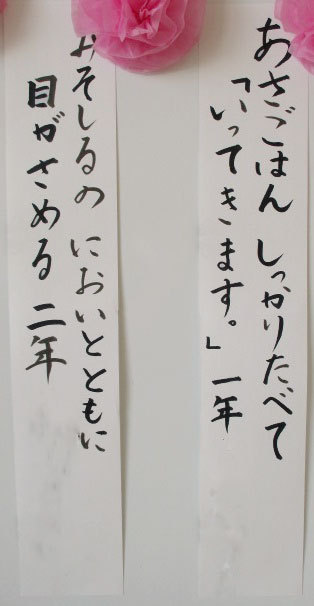 あさごはん しっかりたべて
「いってきます。」 一年
みそしるの においとともに
目がさめる 二年